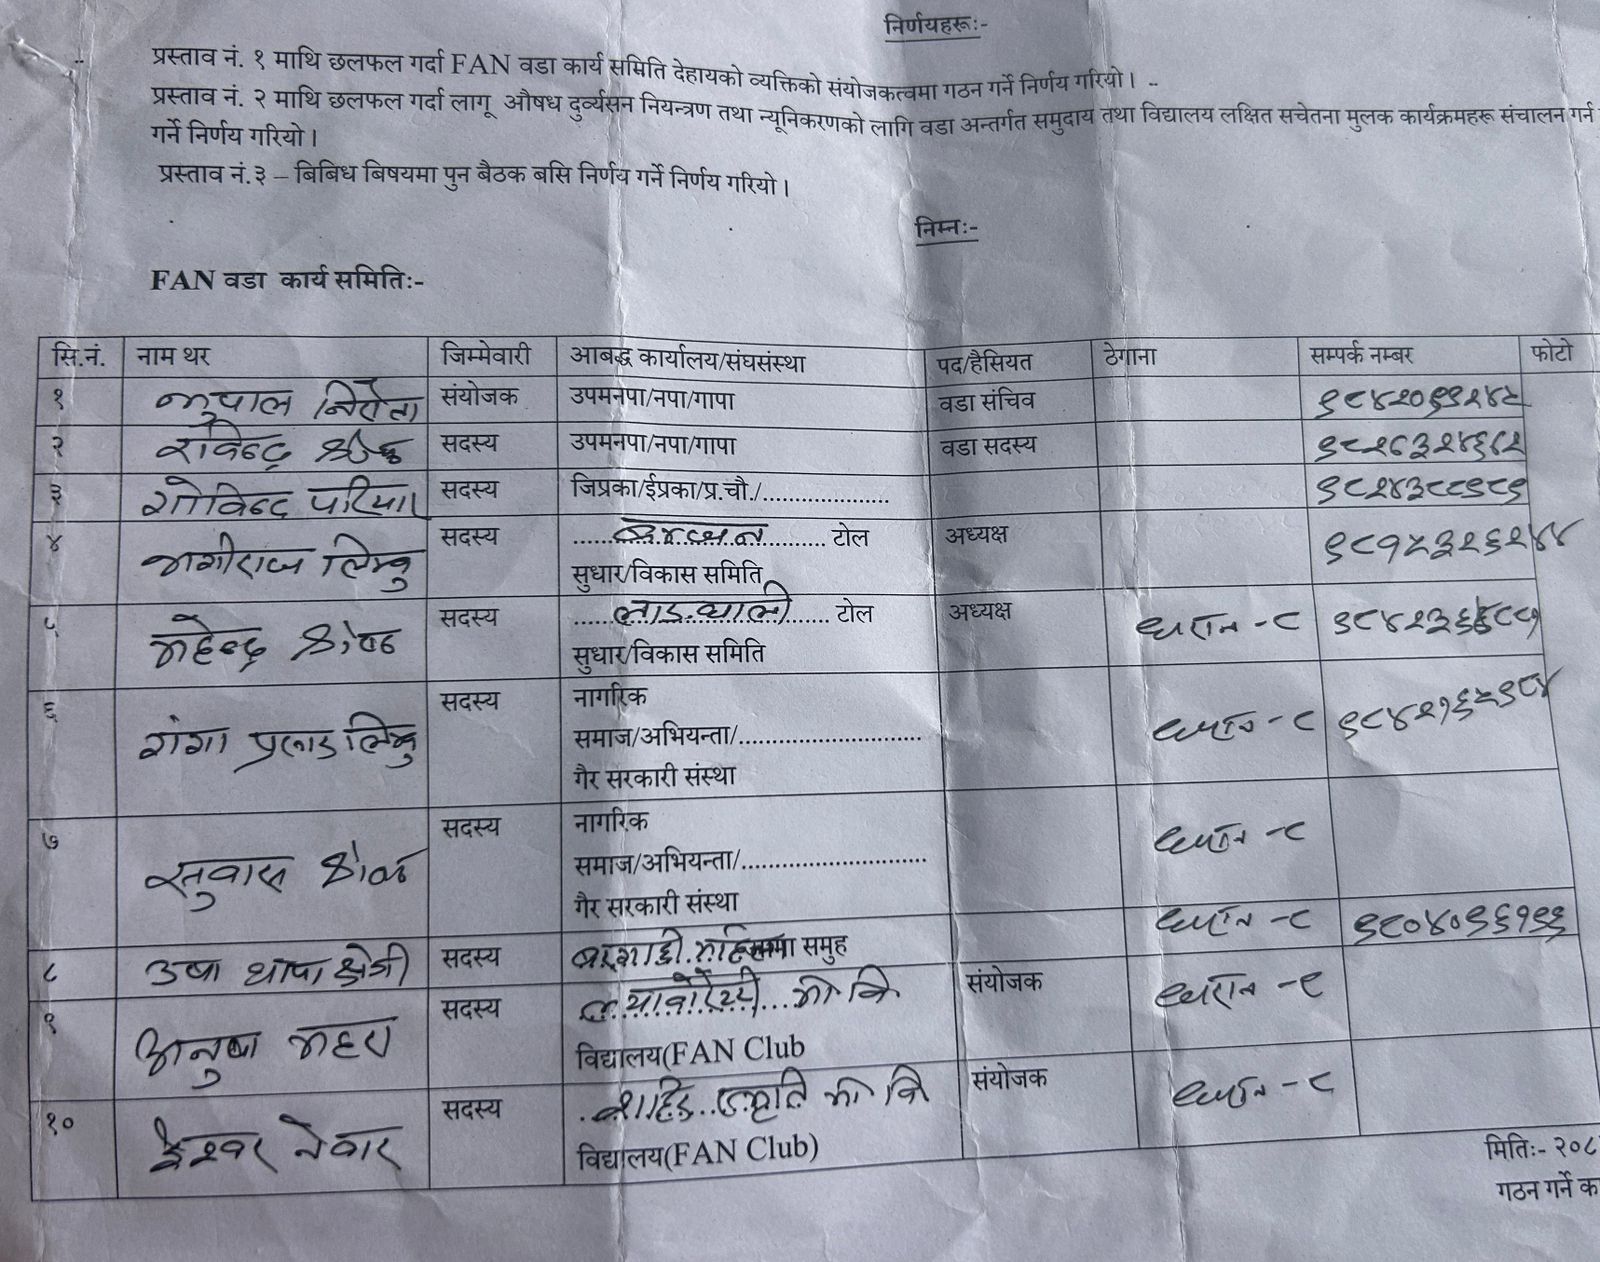 निर्णयहरूः-
प्रस्ताव नं. १ माथि छलफल गर्दा FAN वडा कार्य समिति देहायको व्यक्तिको संयोजकत्वमा गठन गर्ने निर्णय गरियो ।
प्रस्ताव नं. २ माथि छलफल गर्दा लागू औषध दुर्व्यसन नियन्त्रण तथा न्यूनिकरणको लागि वडा अन्तर्गत समुदाय तथा विद्यालय लक्षित सचेतना मुलक कार्यक्रमहरू संचालन गर्न
गर्ने निर्णय गरियो ।
प्रस्ताव नं.३ – बिबिध बिषयमा पुन बैठक बसि निर्णय गर्ने निर्णय गरियो ।
निम्नः-
FAN वडा कार्य समितिः-
सि.नं. नाम थर जिम्मेवारी आबद्ध कार्यालय/संघसंस्था पद/हैसियत ठेगाना सम्पर्क नम्बर फोटो
१ भुपाल निरौला संयोजक उपमनपा/नपा/गापा वडा संचिव
२ रविन्द्र श्रेष्ठ सदस्य उपमनपा/नपा/गापा वडा सदस्य
३ गोविन्द परियार सदस्य जिप्रका/ईप्रका/प्र.चौ./.....................
४ लिम्बु सदस्य टोल अध्यक्ष
सुधार/विकास समिति
५ महेन्द्र श्रेष्ठ सदस्य टोल अध्यक्ष धरान-८
सुधार/विकास समिति
६ गंगा प्रसाद लिम्बु सदस्य नागरिक धरान-८
समाज/अभियन्ता/..............................
गैर सरकारी संस्था
७ सुवास श्रेष्ठ सदस्य नागरिक धरान-८
समाज/अभियन्ता/..............................
गैर सरकारी संस्था
८ उषा थापा क्षेत्री सदस्य समुह धरान-८ ९८०४०९६१९६
९ अनुषा सदस्य मा.वि संयोजक धरान-८
विद्यालय(FAN Club
१० ईश्वर नेवार सदस्य स्मृति मा.वि संयोजक धरान-८
विद्यालय(FAN Club)
मितिः- २०८
गठन गर्ने क